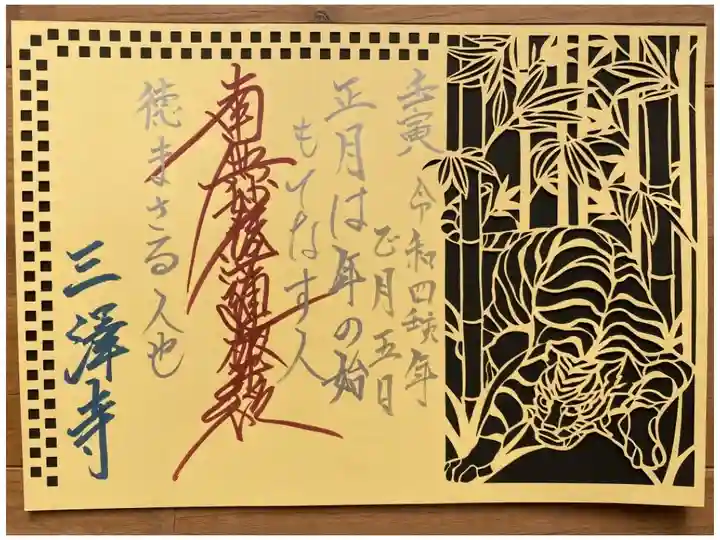 壬寅 令和四年
正月五日
正月は年の始
もてなす人
南無妙法蓮華経
徳まさる人也
三澤寺